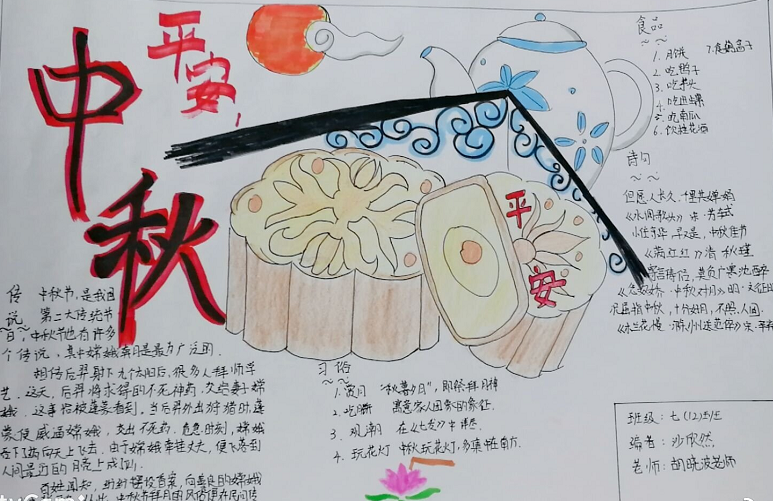 平安
中秋
食品
1. 月饼
2. 吃鸭子
3. 吃芋头
4. 吃田螺
5. 吃南瓜
6. 饮桂花酒
诗句
但愿人长久，
《水调歌头》宋·苏轼
小住京华，早又是，中秋佳节
《满江红》清 秋瑾
《念奴娇·中秋对月》明·文征明
平
安
传说
中秋节，是我国
第二大传统节
日，中秋节也有许多
个传说，其中嫦娥奔月是最为广泛的。
相传后羿射下九个太阳后，很多人拜师学
艺。这天，后羿将求得的不死神药，交给妻子嫦
娥。这事恰被蓬蒙看到，当后羿外出狩猎时，蓬
蒙便威逼嫦娥，交出不死药。危急时刻，嫦娥
吞下药向天上飞去。由于嫦娥牵挂丈夫，便飞落到
人间最近的月亮上成了仙。
百姓闻知，纷纷摆设香案，向善良的嫦娥
习俗
1. 赏月 "秋暮夕月"，即祭拜月神
2. 吃月饼 寓意家人团圆的象征
3. 观潮 在《七发》中
4. 玩花灯 中秋玩花灯，多集在南方。
班级：七(12)班
编者：沙欣然
老师：胡晓波老师